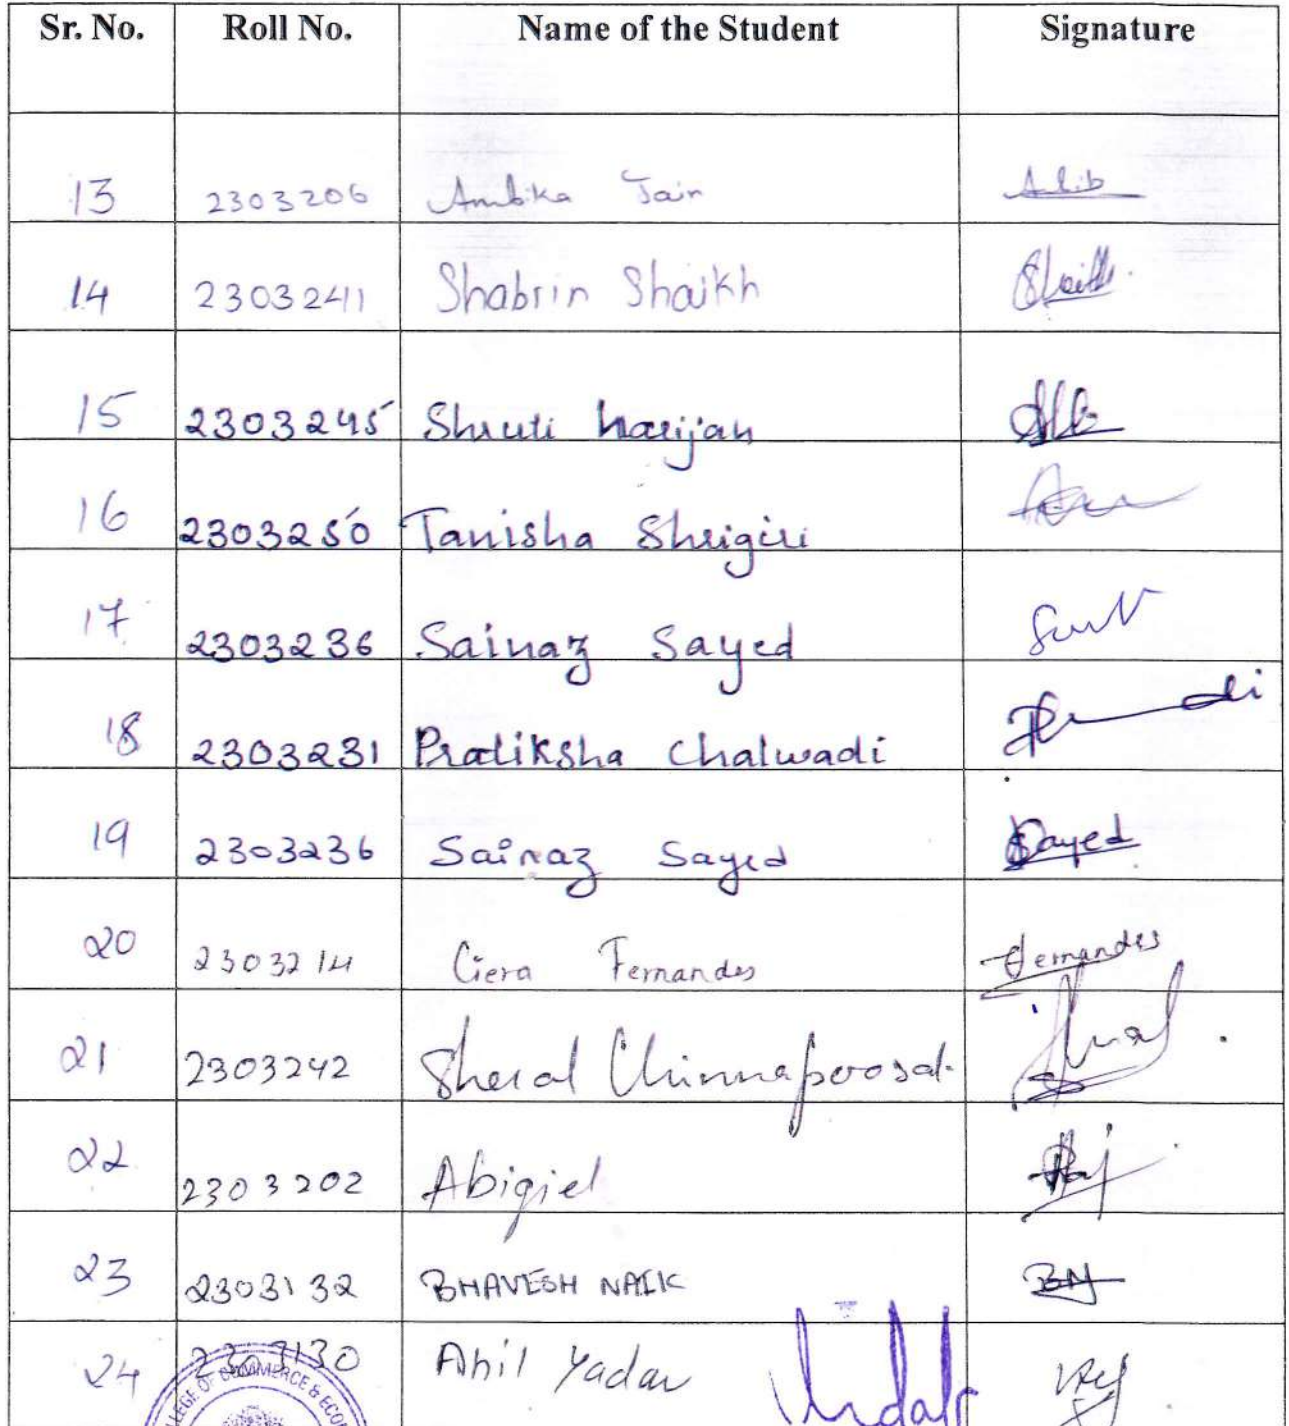 Sr. No. Roll No. Name of the Student Signature
13 2303206 Ambika Jain
14 2303241 Shabrin Shaikh Shaikh
15 2303245 Shruti harijan
16 2303250 Tanisha Shrigiri
17 2303236 Sainaz Sayed
18 2303231 Pratiksha Chalwadi
19 2303236 Sainaz Sayed Sayed
20 2303214 Ciera Fernandes Fernandes
21 2303242 Sheral Chinnaperosal.
22 2303202 Abigiel
23 2303132 BHAVESH NAIK BN
24 2303130 Anil Yadav
COMMERCE &